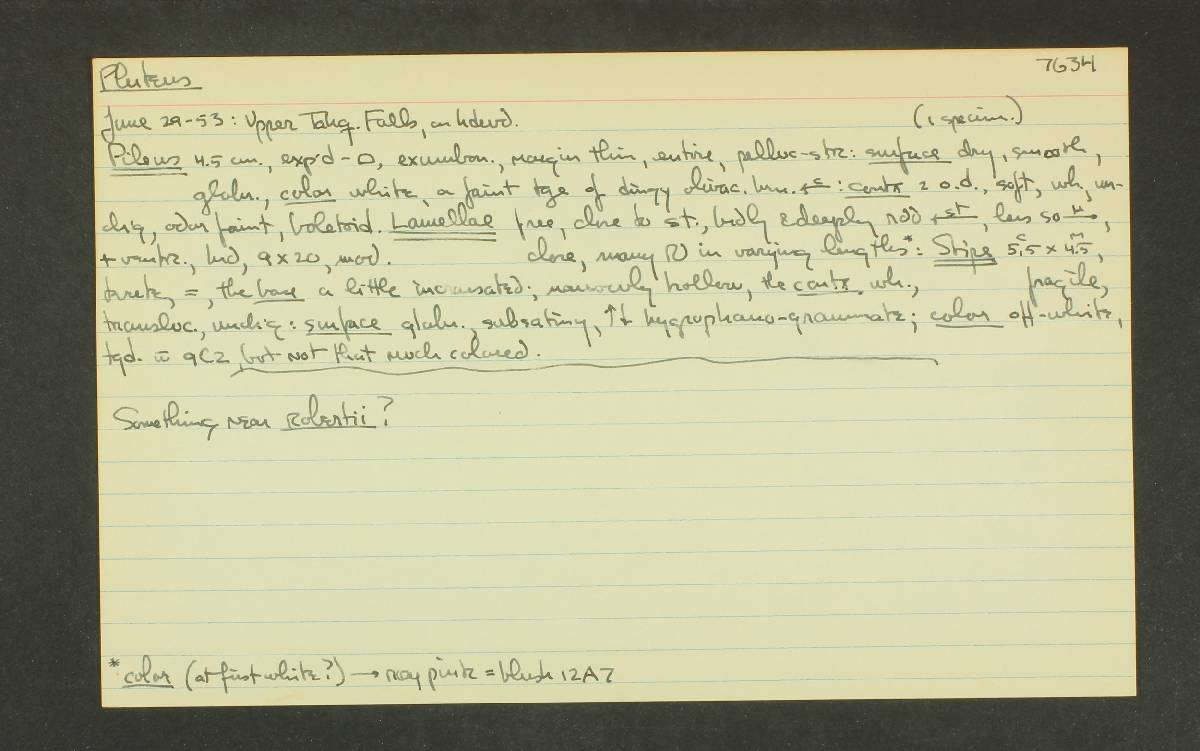 Pluteus 7634
June 29-53: Upper Tahq. Falls, on hdwd. (1 specim.)
Pileus 4.5 cm., exp'd - , exumbon., margin thin, entire, pelluc-str: surface dry, smooth,
glabr., color white, a faint tge of dingy olivac. brn. : contx 2 o.d., soft, wh, un-
chg, odor faint, boletoid. Lamellae free, close to st., brdly & deeply rdd st, less so ,
+ ventr., brd, 9 x 20, mod. close, many in varying lengths*: Stipe 5.5 x 4.5,
terete, =, the base a little incrassated; narrowly hollow, the contx wh., fragile,
transluc., unchg: surface glabr., subsatiny, hygrophano-grammate; color off-white,
tgd. 9C2, but not that much colored.
Something near Robertii?
*color (at first white?) → rosy pink = blush 12A7